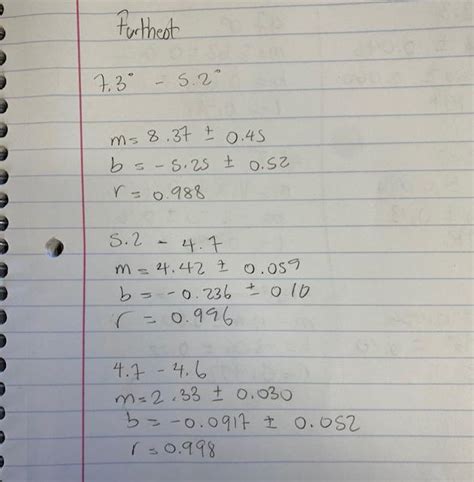 Furthest
7.3° - 5.2°
m = 8.37 ± 0.45
b = -5.25 ± 0.52
r = 0.988
5.2 - 4.7
m = 4.42 ± 0.059
b = -0.236 ± 0.10
r = 0.996
4.7 - 4.6
m = 2.33 ± 0.030
b = -0.0917 ± 0.052
r = 0.998